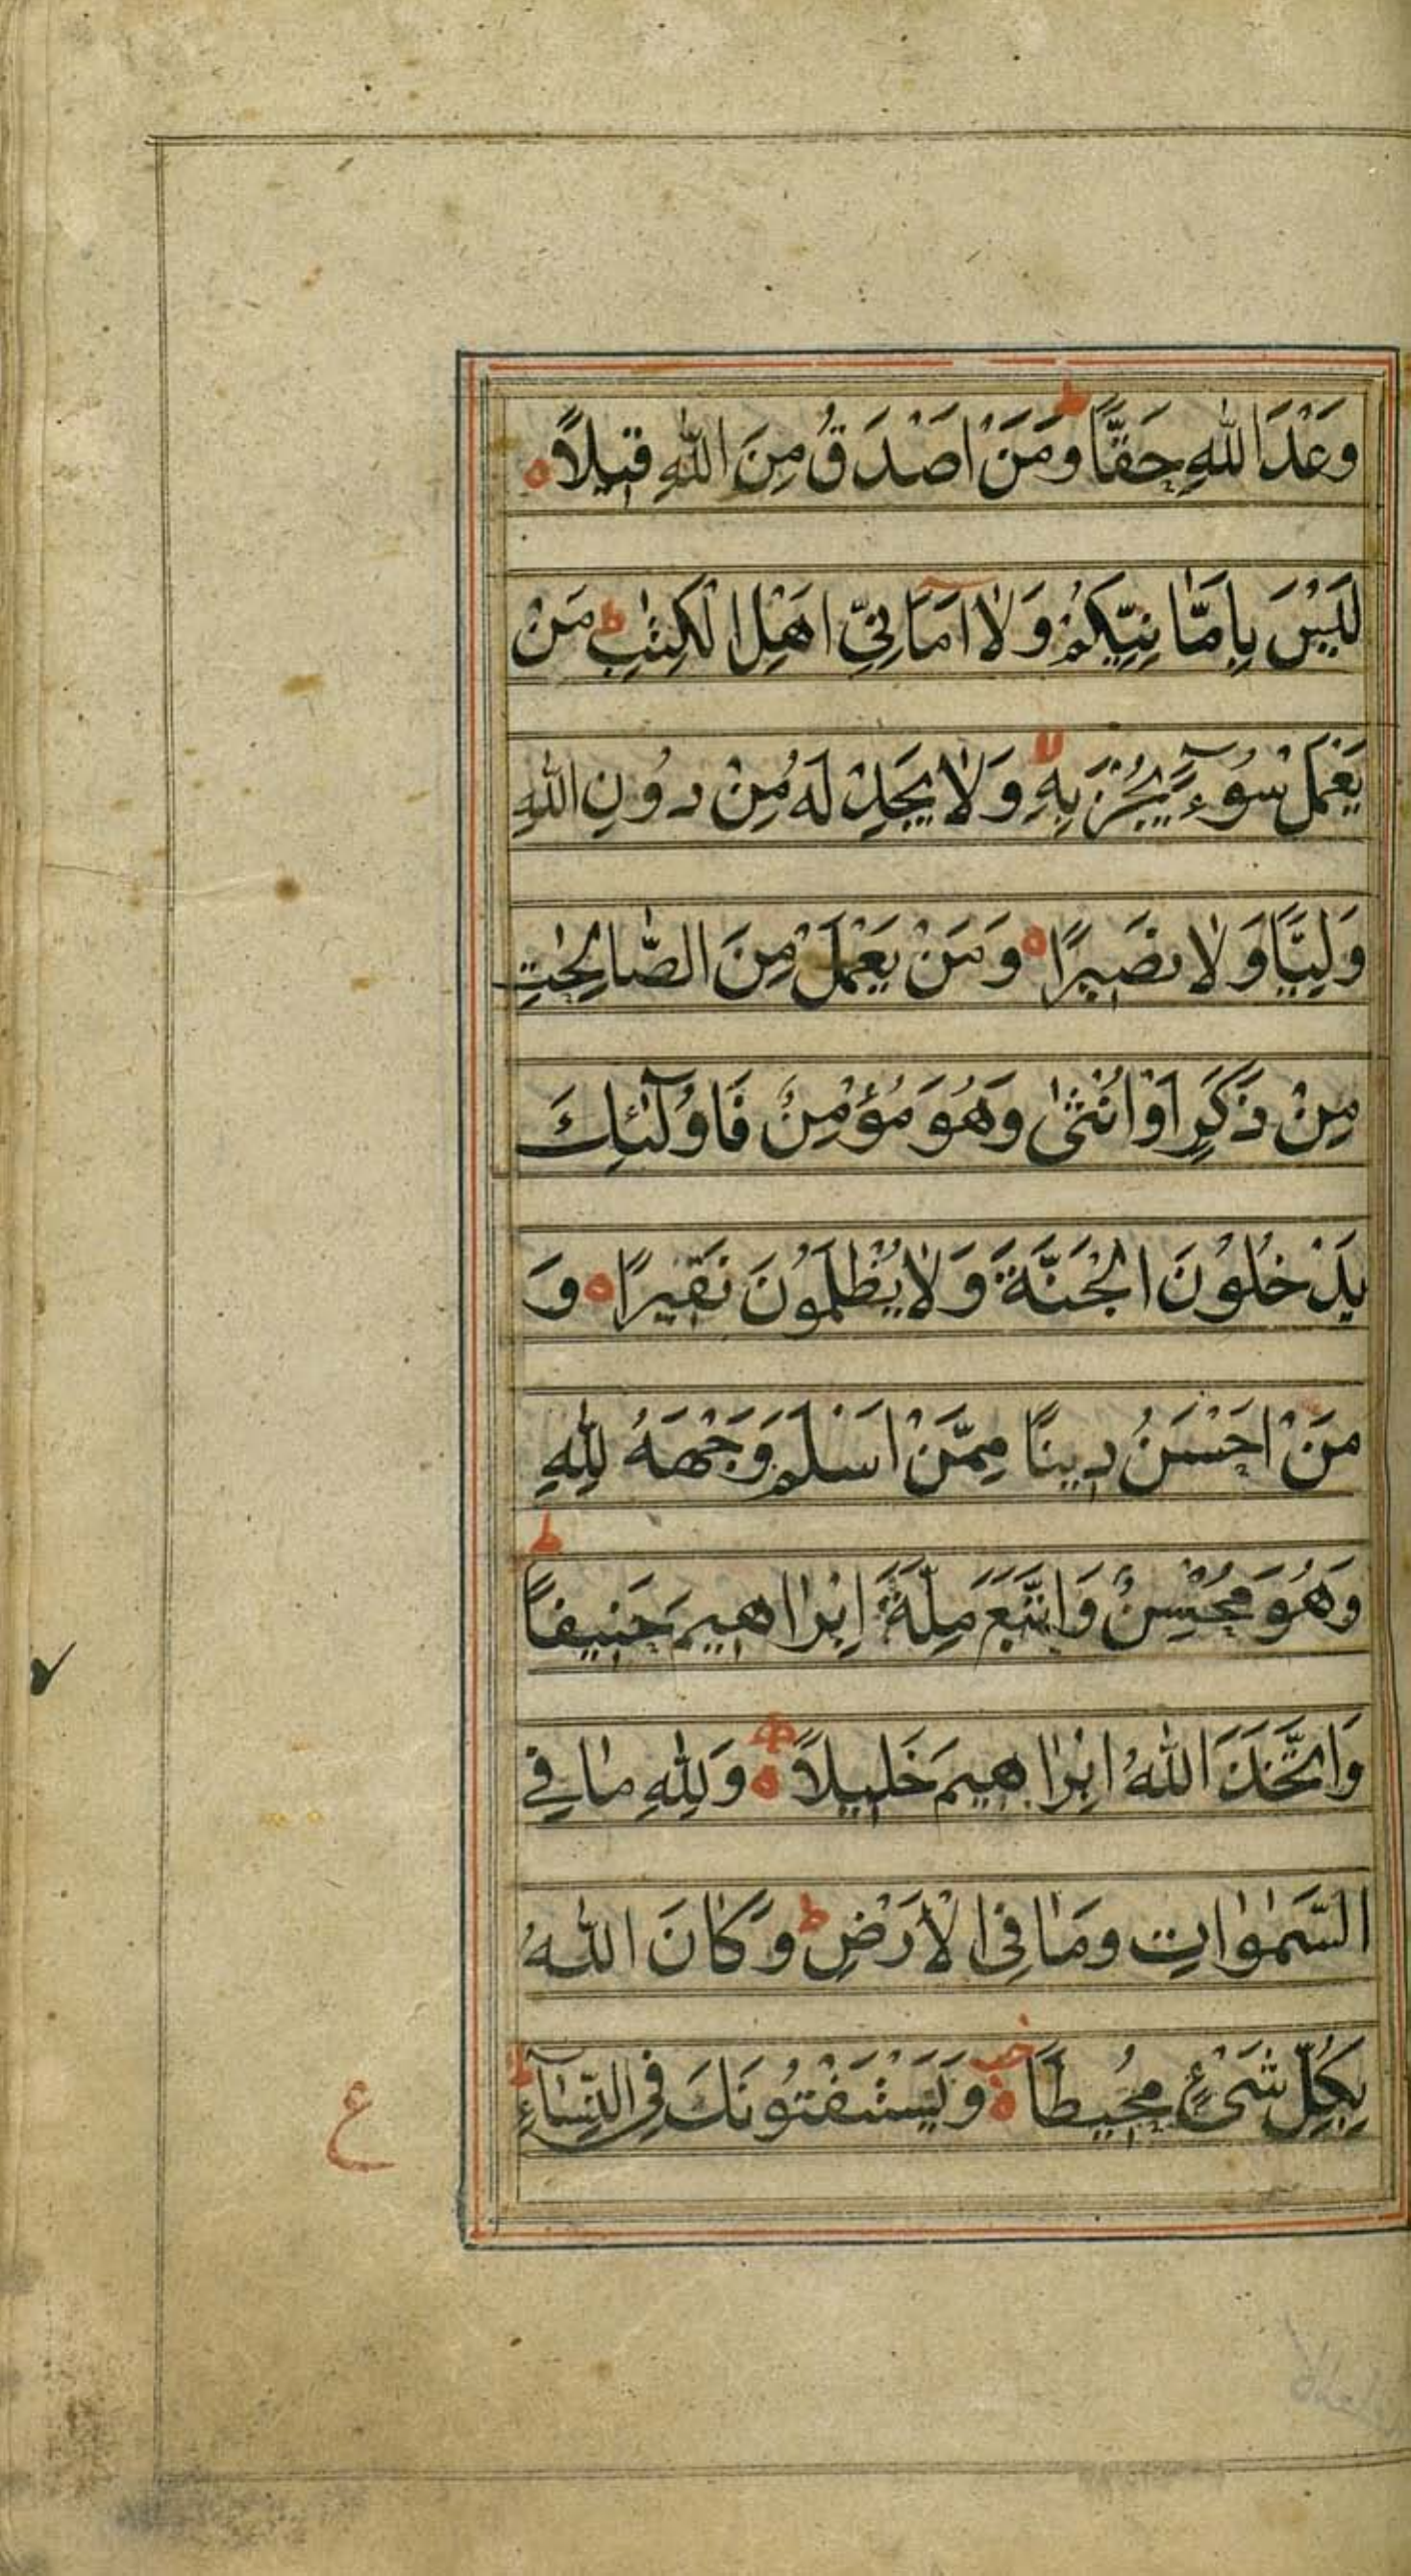 وَعْدَ اللّٰهِ حَقًّا ط وَمَنْ اَصْدَقُ مِنَ اللّٰهِ قِيلًا ه
لَيْسَ بِاَمَانِيِّكُمْ وَلَا اَمَانِيِّ اَهْلِ الْكِتٰبِ ط مَنْ
يَعْمَلْ سُوٓءًا يُجْزَ بِهٖ لا وَلَا يَجِدْ لَهُ مِنْ دُوْنِ اللّٰهِ
وَلِيًّا وَلَا نَصِيرًا ه وَمَنْ يَعْمَلْ مِنَ الصَّالِحٰتِ
مِنْ ذَكَرٍ اَوْ اُنْثٰى وَهُوَ مُؤْمِنٌ فَاُولٰٓئِكَ
يَدْخُلُوْنَ الْجَنَّةَ وَلَا يُظْلَمُوْنَ نَقِيرًا ه وَ
مَنْ اَحْسَنُ دِينًا مِمَّنْ اَسْلَمَ وَجْهَهُ لِلّٰهِ
وَهُوَ مُحْسِنٌ وَاتَّبَعَ مِلَّةَ اِبْرَاهِيمَ حَنِيفًا ط
وَاتَّخَذَ اللّٰهُ اِبْرَاهِيمَ خَلِيلًا ه وَلِلّٰهِ مَا فِي
السَّمٰوٰاتِ وَمَا فِي الْاَرْضِ ط وَكَانَ اللّٰهُ
بِكُلِّ شَيْءٍ مُحِيطًا ه وَيَسْتَفْتُوْنَكَ فِي النِّسَآءِ ط
ع